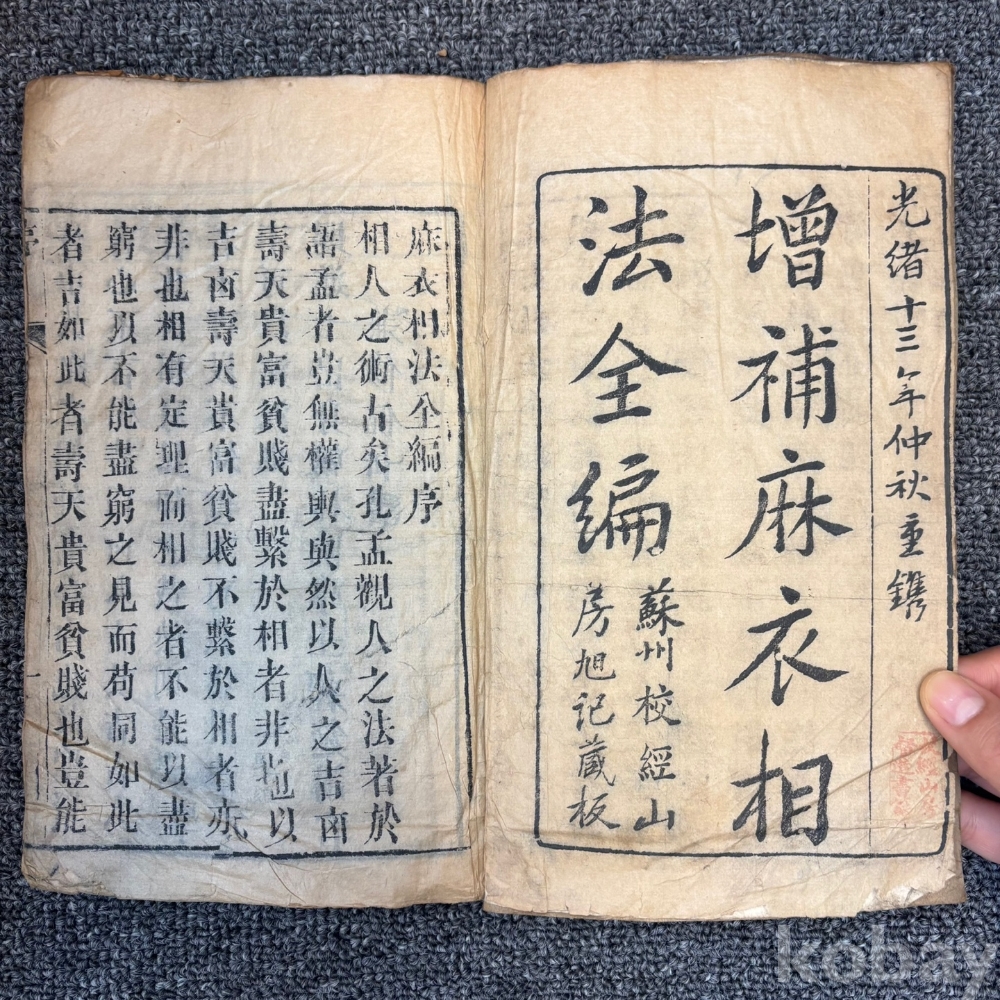 光緒十三年仲秋重鐫
增補麻衣相
法全編
蘇州校經山
房旭記藏板
麻衣相法全編序
相人之術古矣孔孟觀人之法著於
語孟者豈無權輿與然以人之吉凶
壽夭貴富貧賤盡繫於相者非也以
吉凶壽夭貴富貧賤不繫於相者亦
非也相有定理而相之者不能以盡
窮也以不能盡窮之見而苟同如此
者吉如此者壽夭貴富貧賤也豈能
序
一
kobay